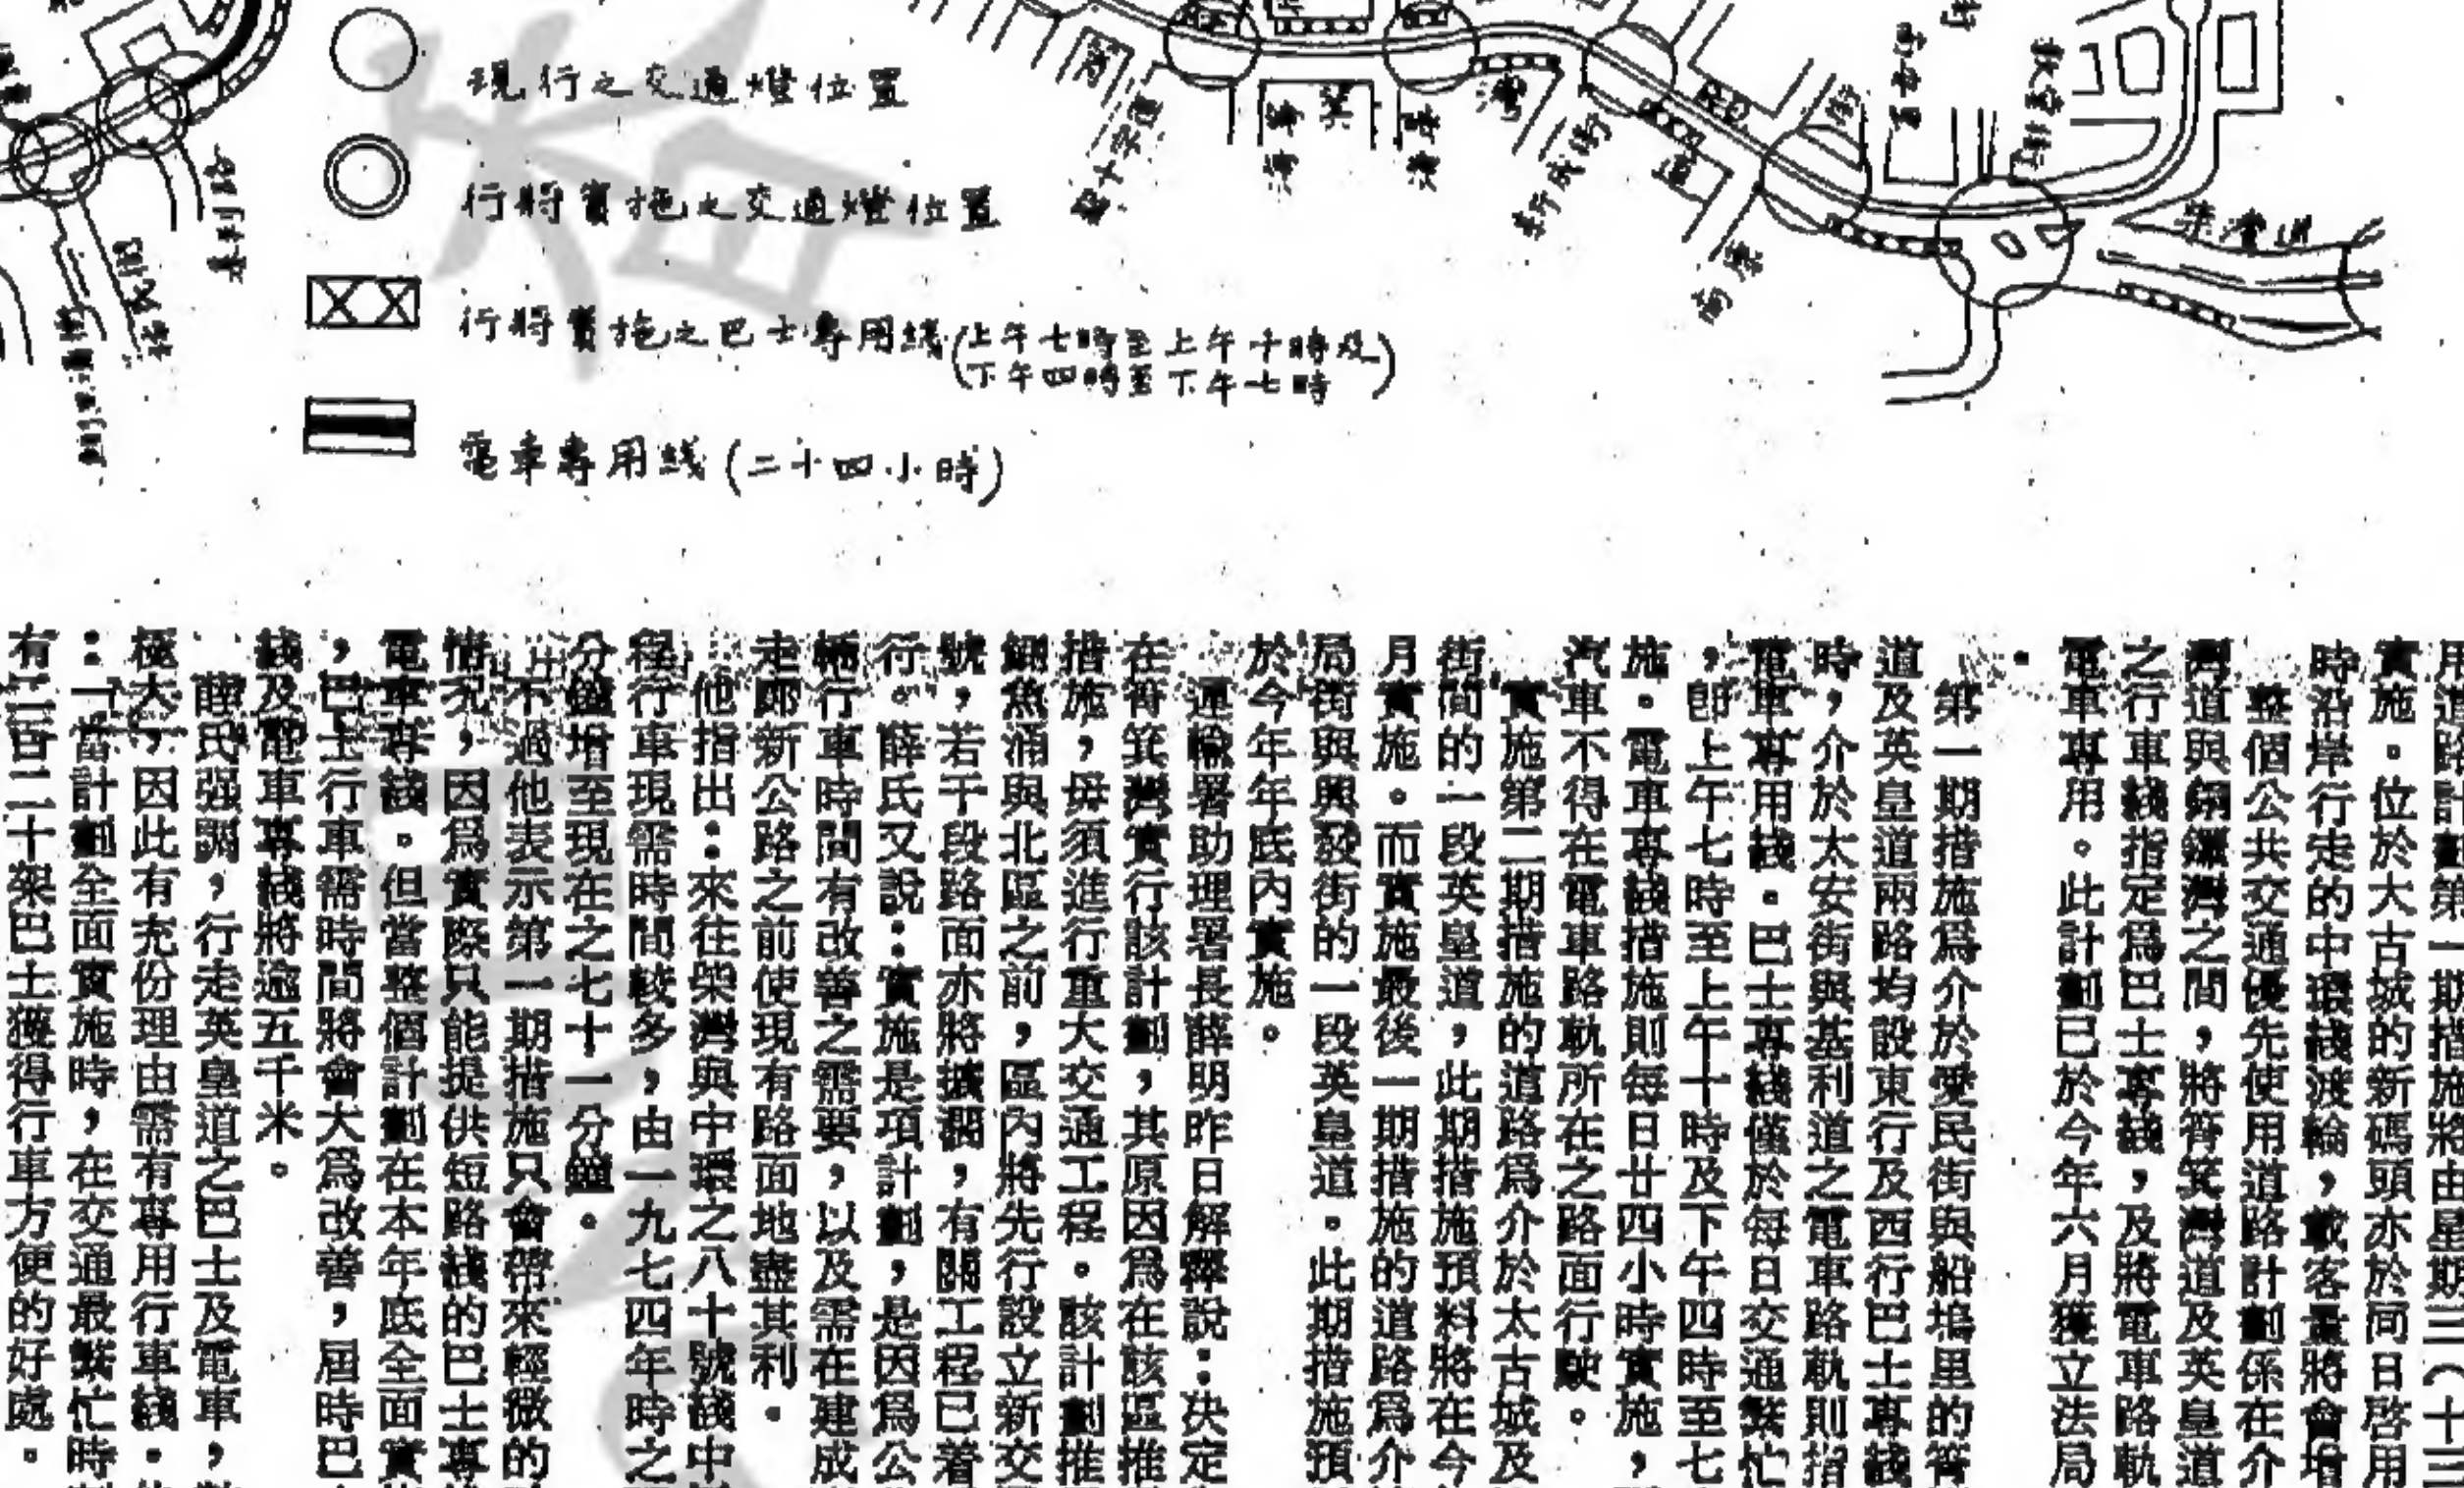 現行之交通燈位置
行將實施之交通燈位置
行將實施之巴士專用綫(上午七時至上午十時及
下午四時至下午七時)
電車專用綫(二十四小時)
柴灣道
RD
新成街
基利路
用道路計劃第一期措施將由星期三(十三
實施。位於太古城的新碼頭亦於同日啓用
時沿岸行走的中環綫渡輪,載客量將會增
整個公共交通優先使用道路計劃係在介
灣道與銅鑼灣之間,將筲箕灣道及英皇道
之行車綫指定爲巴士專綫,及將電車路軌
電車專用。此計劃已於今年六月獲立法局
。
第一期措施爲介於愛民街與船塢里的筲
道及英皇道兩路均設東行及西行巴士專綫
時,介於太安街與基利道之電車路軌則指
電車專用綫。巴士專綫僅於每日交通繁忙
,卽上午七時至上午十時及下午四時至七
施。電車專綫措施則每日廿四小時實施,
汽車不得在電車路軌所在之路面行駛。
實施第二期措施的道路爲介於太古城及
街間的一段英皇道,此期措施預料將在今
月實施。而實施最後一期措施的道路爲介
局街與興發街的一段英皇道。此期措施預
於今年年底內實施。
運輸署助理署長薛明昨日解釋說:決定
在筲箕灣實行該計劃,其原因爲在該區推
措施,毋須進行重大交通工程。該計劃推
鰂魚涌與北區之前,區內將先行設立新交
號,若干段路面亦將擴濶,有關工程已着
行。薛氏又說:實施是項計劃,是因爲公
輛行車時間有改善之需要,以及需在建成
走廊新公路之前使現有路面地盡其利。
他指出:來往柴灣與中環之八十號綫中
程行車現需時間較多,由一九七四年時之
分鐘增至現在之七十一分鐘。
不過他表示第一期措施只會帶來輕微的
情况,因爲實際只能提供短路綫的巴士專
電車專綫。但當整個計劃在本年底全面實
,巴士行車需時間將會大爲改善,屆時巴
綫及電車專綫將逾五千米。
薛氏强調,行走英皇道之巴士及電車,
極大,因此有充份理由需有專用行車綫。
:「當計劃全面實施時,在交通最繁忙時
有二百二十架巴士獲得行車方便的好處。